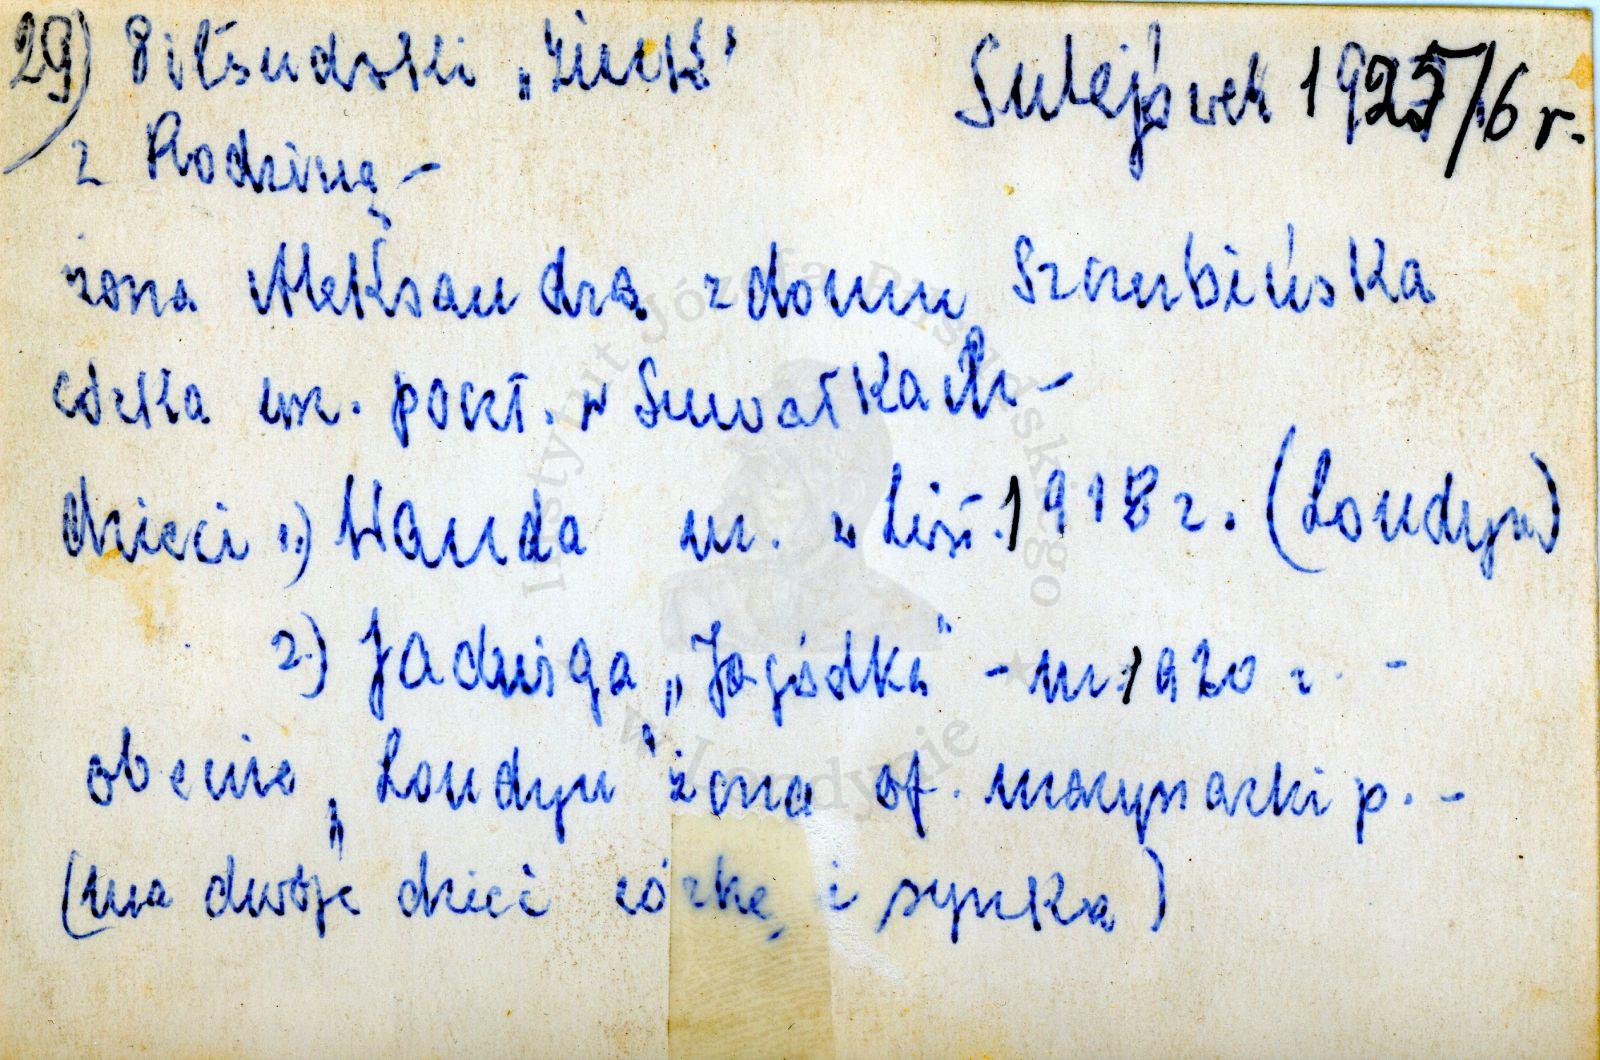 29) Piłsudski „Ziuk” Sulejówek 1925/6 r.
z Rodziną –
żona Aleksandra z domu Szczerbińska
córka urz. poczt. w Suwałkach –
dzieci 1.) Wanda ur. w 1918 r. (Londyn)
2.) Jadwiga „Jagódka” – ur. 1920 r. –
obecnie „Londyn” żona of. marynarki p. –
(ma dwoje dzieci córkę i synka)
Instytut Józefa Piłsudskiego
w Londynie